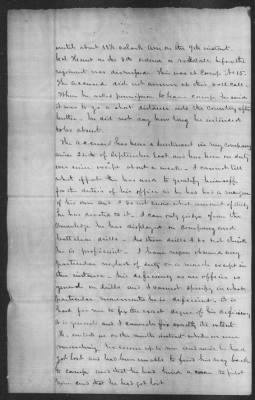 until about 11½ o'clock A.M. on the 9th instant
last Tecent on the 8th ordered a rollcall before the
regiment was dismissed. This was at Camp No 15.
The accused did not answer at this roll call.
When he asked permission to leave camp he said
it was to go a short distance into the Country after
butter. He did not say how long he intended
to be absent.
The accused has been a Lieutenant in my company
since 22nd of September last and has been on duty
ever since except about a week. I cannot tell
what effort he has used to qualify himself
for the duties of his office as he has had a
of his own and I do not know what amount of study
he has devoted to it. I can only judge from the
knowledge he has displayed in Company and
battalion drills. In these drills I do not think
he is proficient. I have never observed any
particular neglect of duty on a march except in
this instance. His deficiency as an officer is
general on drills and I cannot specify in what
particular movements he is deficient. It is
hard for me to fix the exact degree of his deficiency
it is general and I cannot fix exactly its extent.
He joined us on the ninth instant while we were
marching. He came up to me and said he had
got lost and had been unable to find his way back
to camp and that he had hired a man to pilot
him and that he had got lost